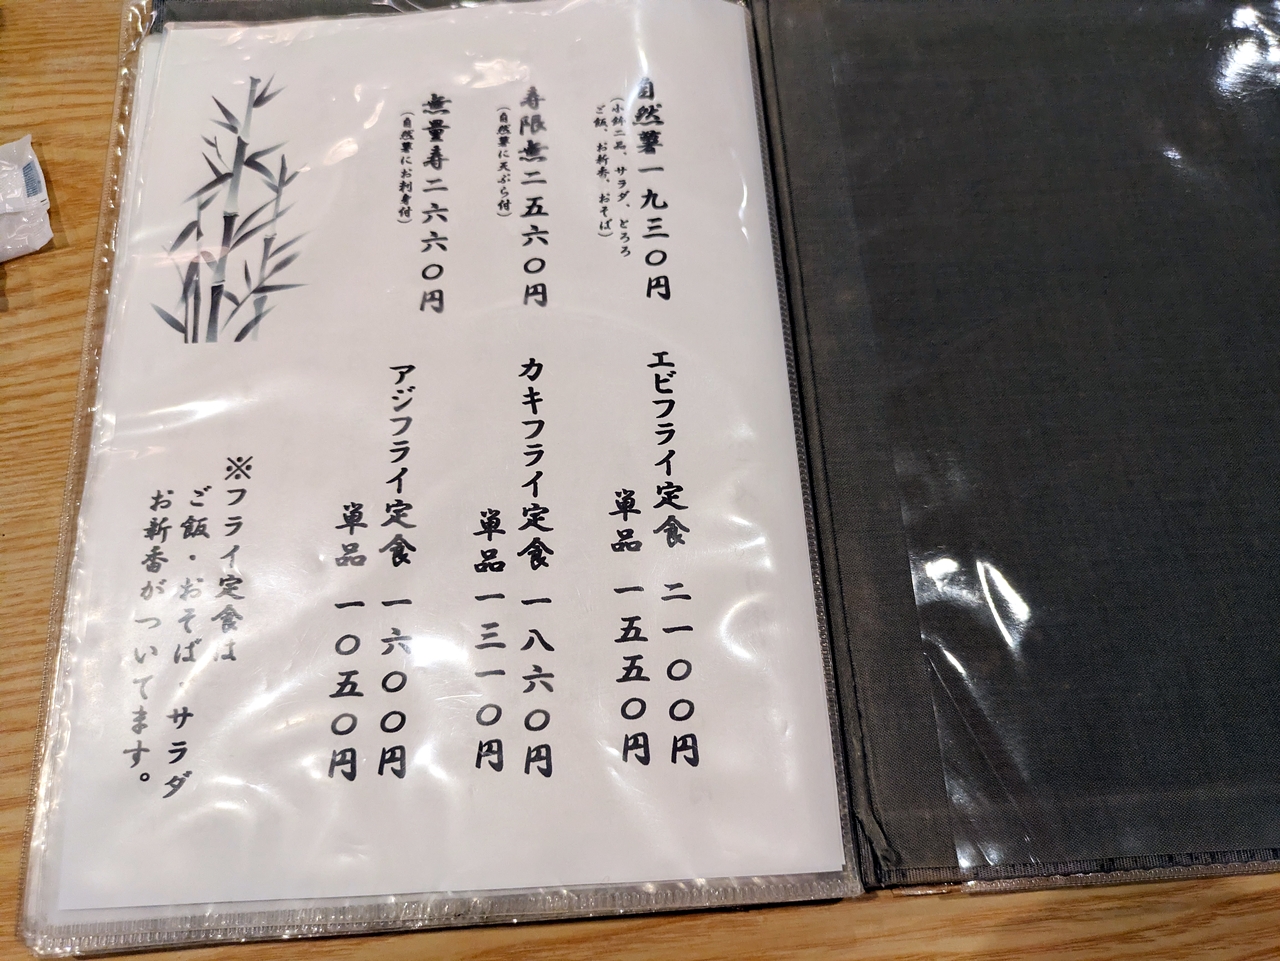 自然薯一九三〇円
(小鉢二品、サラダ、とろろ
ご飯、お新香、おそば)
寿限無二五六〇円
(自然薯に天ぷら付)
無量寿二六六〇円
(自然薯にお刺身付)
エビフライ定食 二一〇〇円
単品 一五五〇円
カキフライ定食 一八六〇円
単品 一三一〇円
アジフライ定食 一六〇〇円
単品 一〇五〇円
※フライ定食は
ご飯・おそば・サラダ
お新香がついてます。